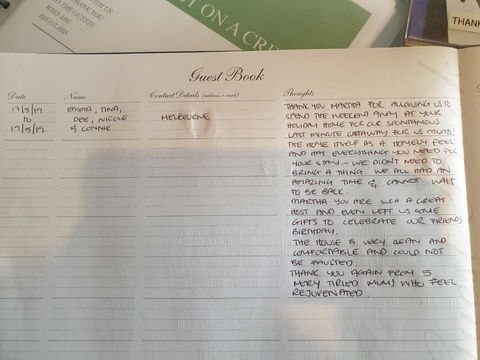 WITH US
THANK YOU
D THE GUESTS
WHO ARE
REGULARS
T ON A CRE
THANK
Guest Book
Date
Name
Contact Details (address, e-mail)
Thoughts
17/5/19
TO
19/5/19
EMMA, TINA,
DEE, NICOLE
& CONNIE
MELBOURNE
THANK YOU MARTHA FOR ALLOWING US TO
SPEND THE WEEKEND AWAY AT YOUR
HOLIDAY HOME FOR OUR SPONTANIOUS
LAST MINUTE GETAWAY FOR US MUMS!
THE HOME ITSELF AS A HOMELY FEEL
AND HAS EVERYTHING YOU NEED FOR
YOUR STAY - WE DIDN'T NEED TO
BRING A THING. WE ALL HAD AN
AMAZING TIME & CANNOT WAIT
TO BE BACK.
MARTHA YOU ARE SUCH A GREAT
HOST AND EVEN LEFT US SOME
GIFTS TO CELEBRATE OUR FRIENDS
BIRTHDAY.
THE HOUSE IS VERY CLEAN AND
COMFORTABLE AND COULD NOT
BE FAULTED.
THANK YOU AGAIN FROM 5
VERY TIRED MUMS WHO FEEL
REJUVENATED.